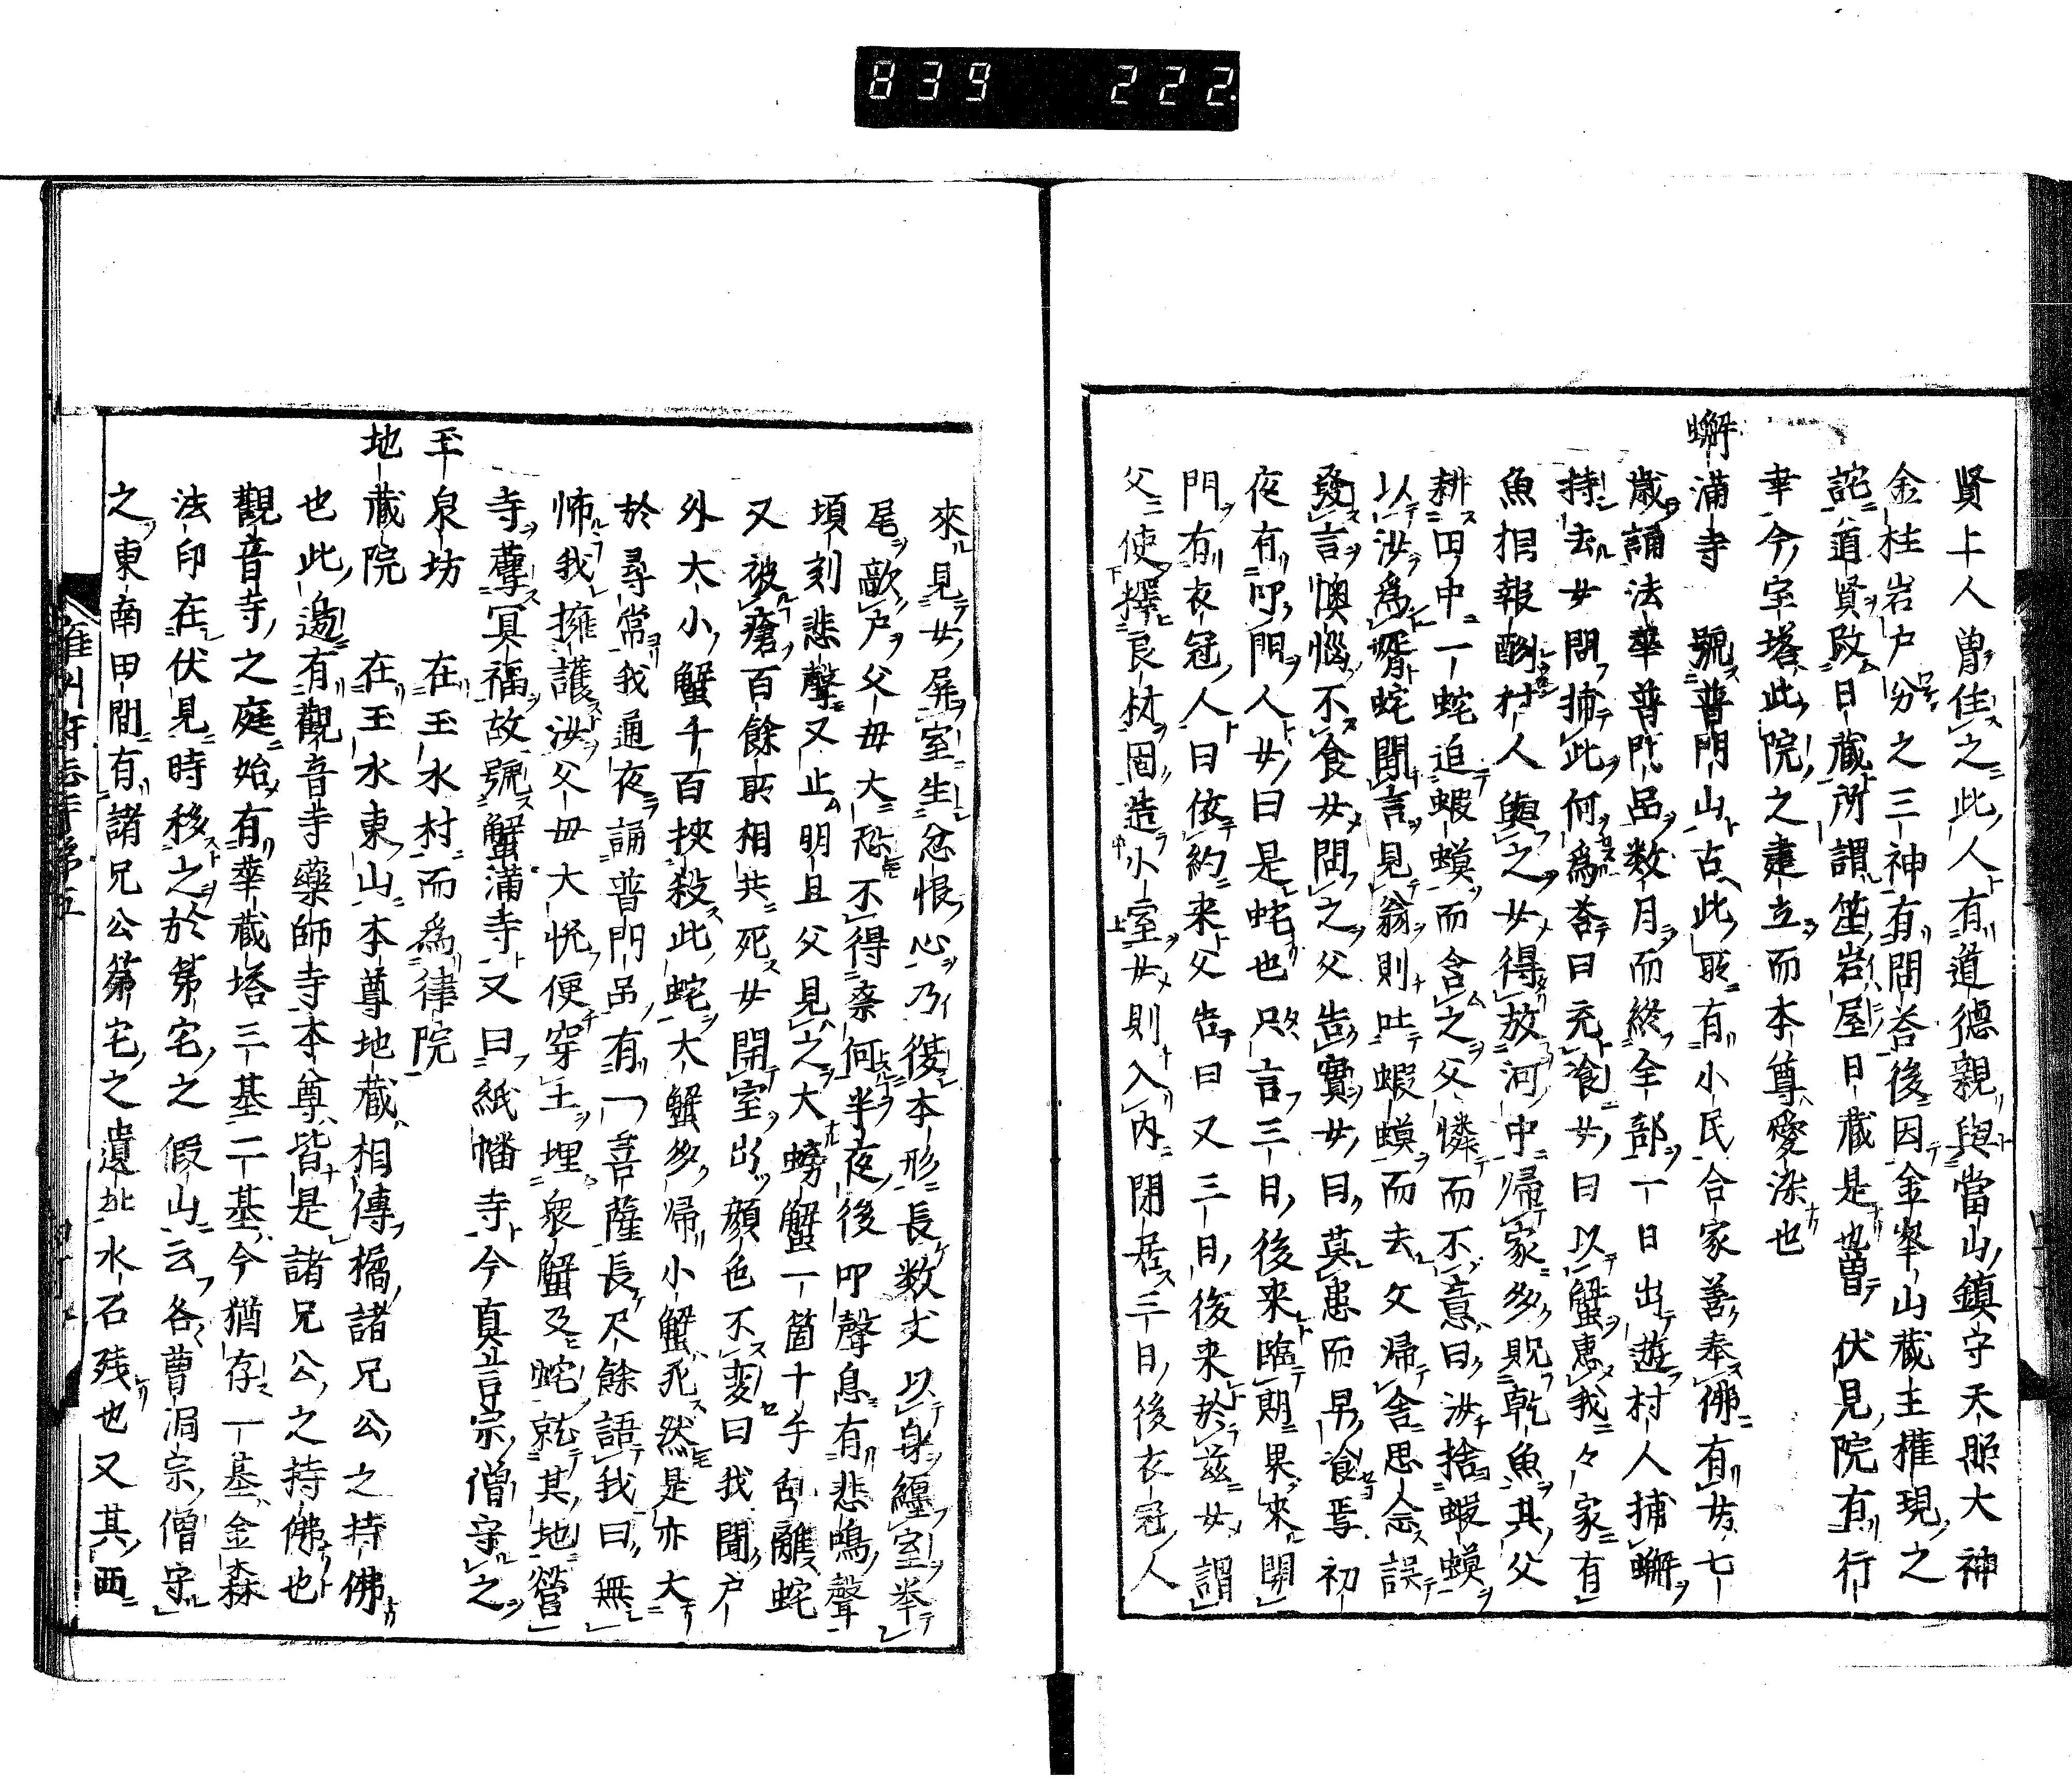 839 222
賢上人曽住之此人有道德親與當山鎮守天照大神
金柱岩戸分之三神有問荅後因金峯山蔵王權現之
詫道賢改日蔵所謂笙岩屋日蔵是也曽伏見院有行
幸今室塔此院之建立而本尊愛染也
蠏滿寺 號普門山古此耴有小民合家善奉佛有女七
歳誦法華普門品数月而終全部一日出遊村人捕蠏
持去女問捕此何爲荅曰充飡女曰以蟹惠我々家有
魚相報酬村人與之女得放河中帰家多貺乾魚其父
耕田中一蛇追蝦蟆而含之父憐而不意曰汝捨蝦蟆
以汝爲壻蛇聞言見翁則吐蝦蟆而去父帰舎思念誤
發言懊惱不食女問之父告實女曰莫患而早飡焉初
夜有叩門人女曰是蛇也只言三日後来臨期果來開
門有衣冠人曰依約来父告曰又三日後来於茲女謂
父使擇良材固造小室女則入内閉居三日後衣冠人
來見女屏室生忿恨心乃復本形長数丈以身纏室举
尾敲戸父毋大恐不得柰何半夜後叩聲息有悲鳴聲
頃刻悲聲又止明旦父見之大螃蟹一箇十手乱離蛇
又被瘡百餘耴相共死女開室出顔色不変曰我聞戸
外大小蟹千百挾殺此蛇大蟹多帰小蟹死然是亦大
於尋常我通夜誦普門品有一菩薩長尺餘語我曰無
怖我擁護汝父毋大悦便穿土埋衆蟹及蛇就其地營
寺薦冥福故號蟹滿寺又曰紙幡寺今真言宗僧守之
玉泉坊 在玉水村而爲律院
地蔵院 在玉水東山本尊地蔵相傳橘諸兄公之持佛
也此邉有觀音寺藥師寺本尊皆是諸兄公之持佛也
觀音寺之庭始有華蔵塔三基二基今猶存一基金森
法印在伏見時移之於第宅之假山云各曹洞宗僧守
之東南田間有諸兄公第宅之遺址水石残也又其西
雍州府志 第五